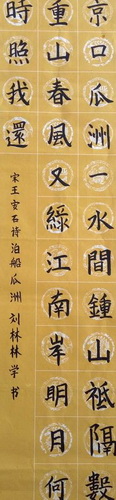 京口瓜洲一水間鍾山祗隔數
重山春風又綠江南岸明月何
時照我還
宋王安石诗泊船瓜洲 刘林林学书